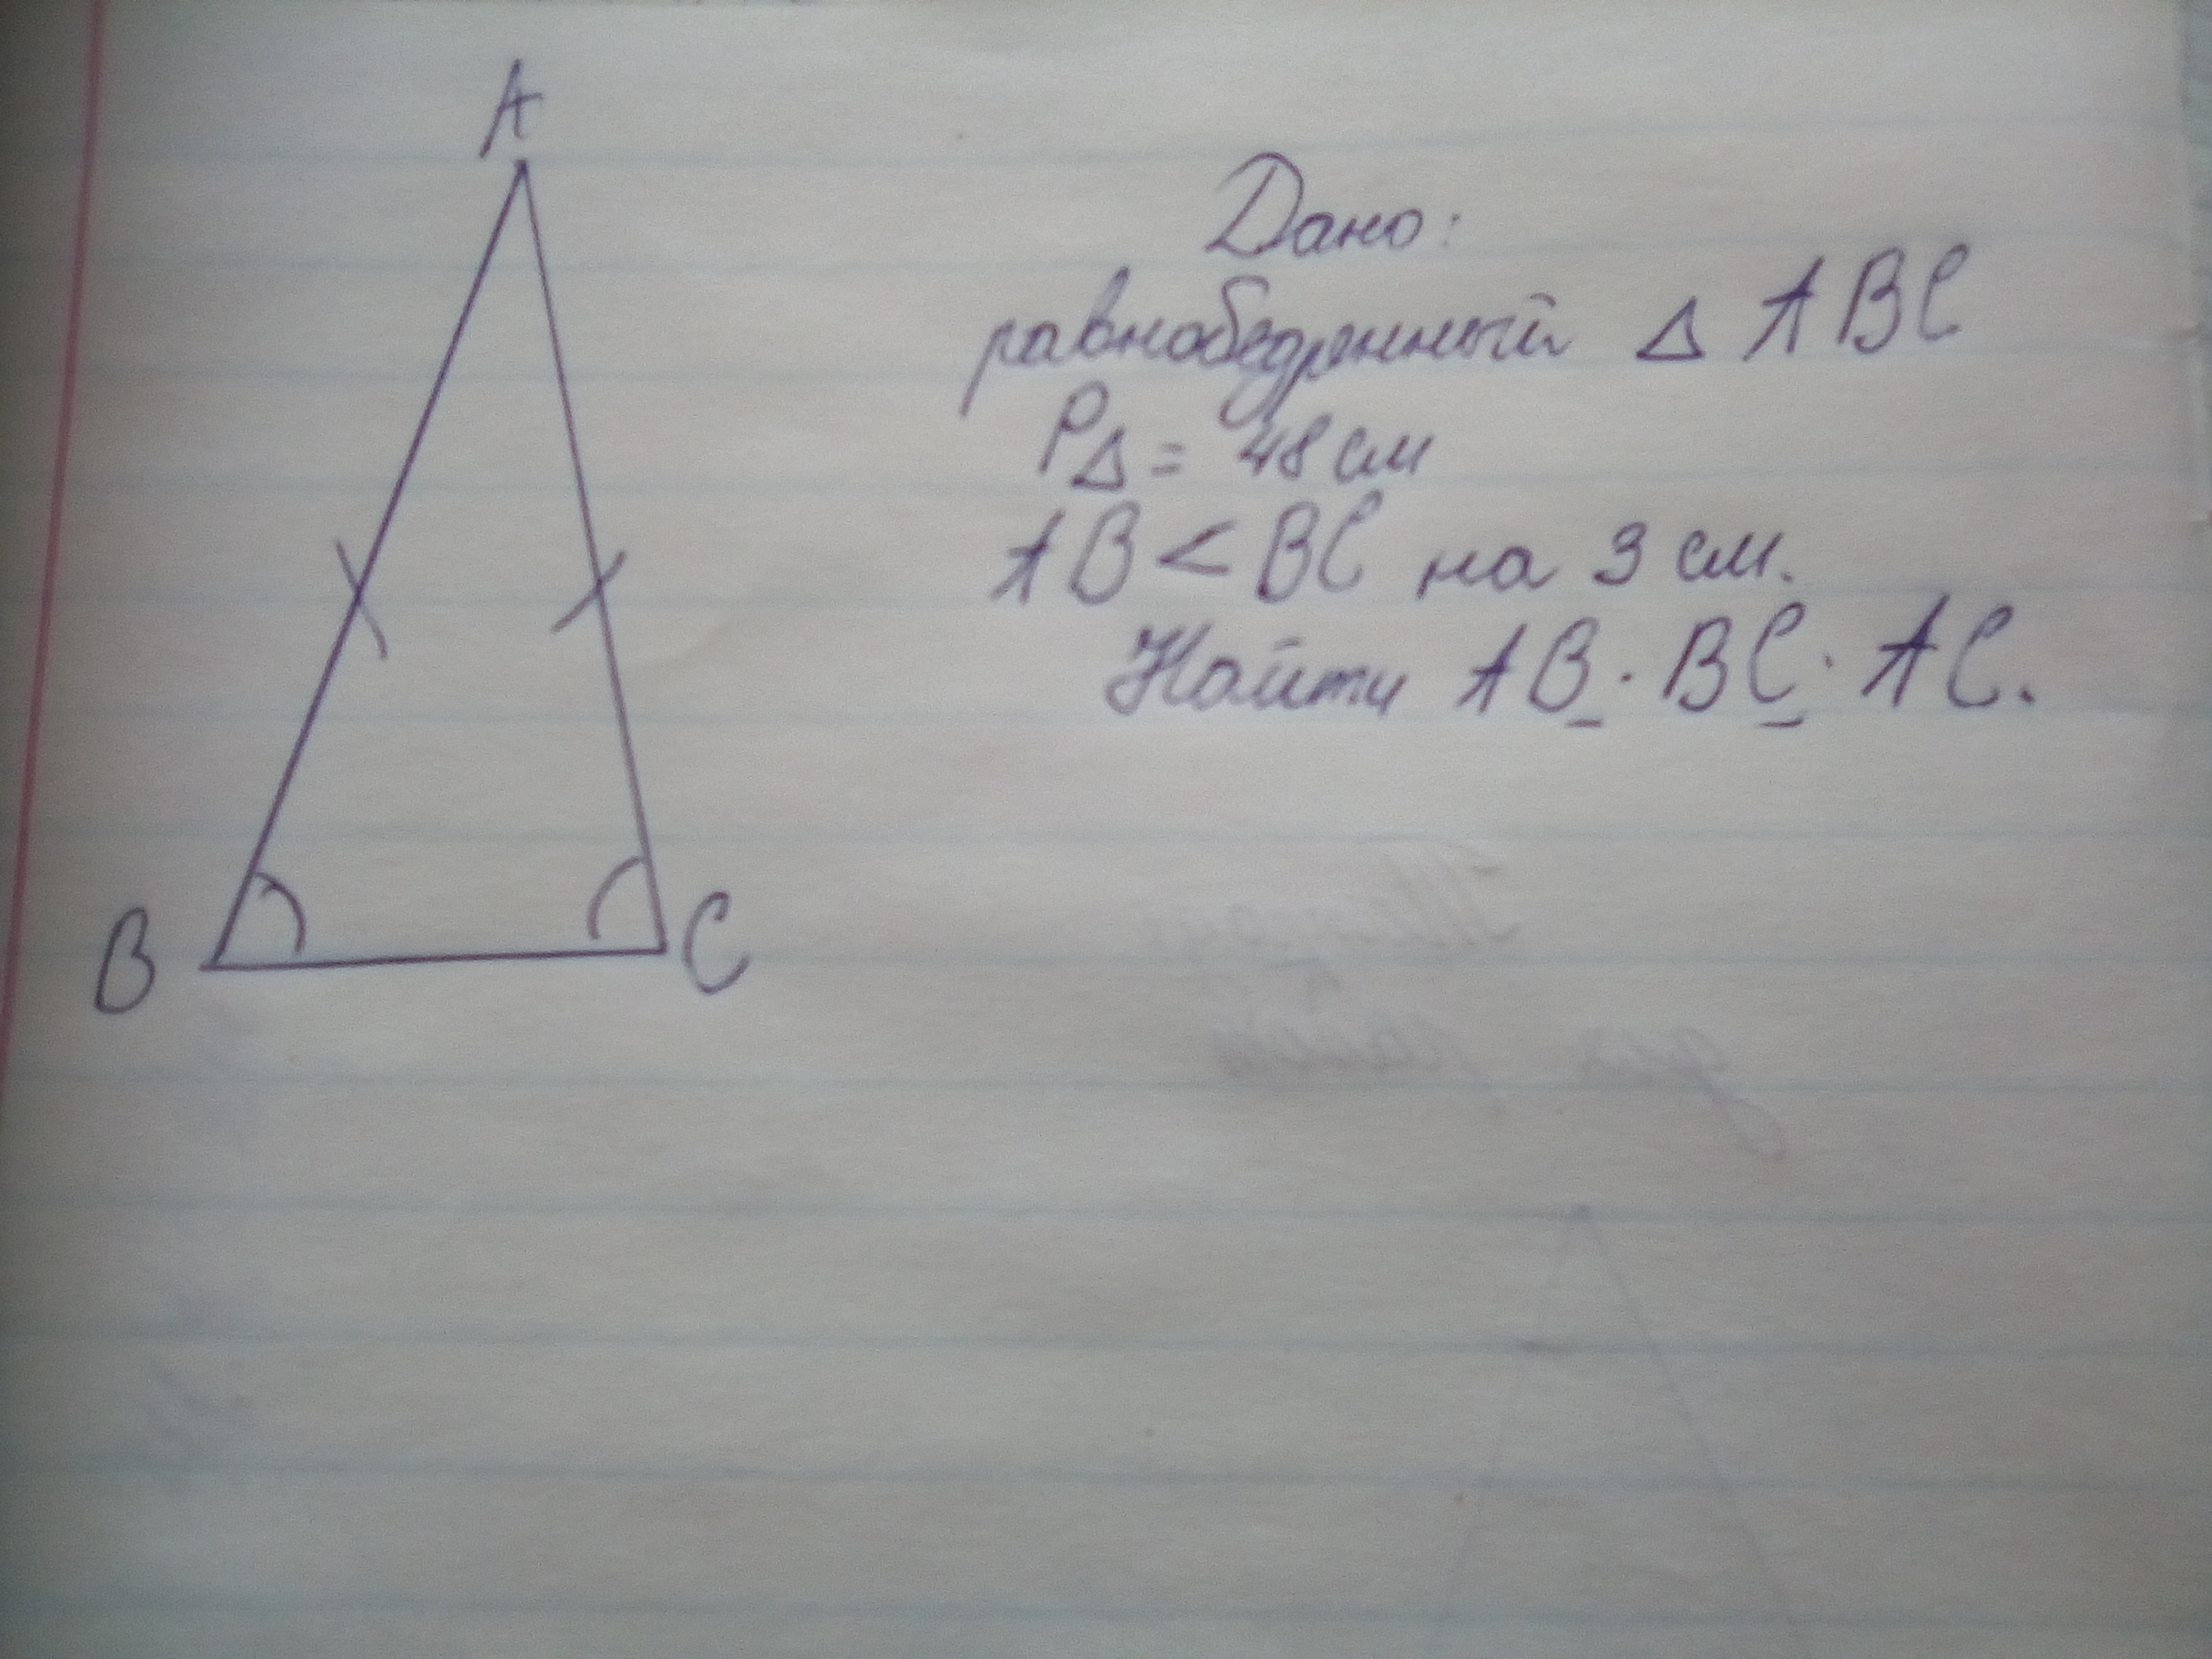 A
B
C
Дано:
равнобедренный Δ ABC
PΔ = 48 см
AB < BC на 3 см.
Найти AB · BC · AC.